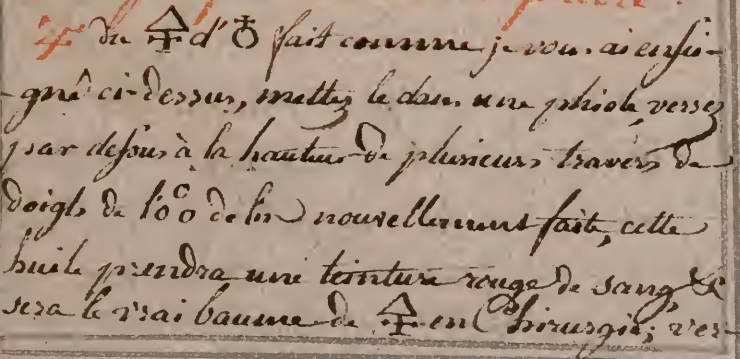 du 🜍 d'♁ fait comme je vous ai ensei-
-gné ci-dessus, mettez le dans une phiole, versez
par dessus à la hauteur de plusieurs travers de
doigts de l'o°o de lin nouvellement faite, cette
huile prendra une teinture rouge de sang, &
sera le vrai baume de 🜍 en Chirurgie; ver-